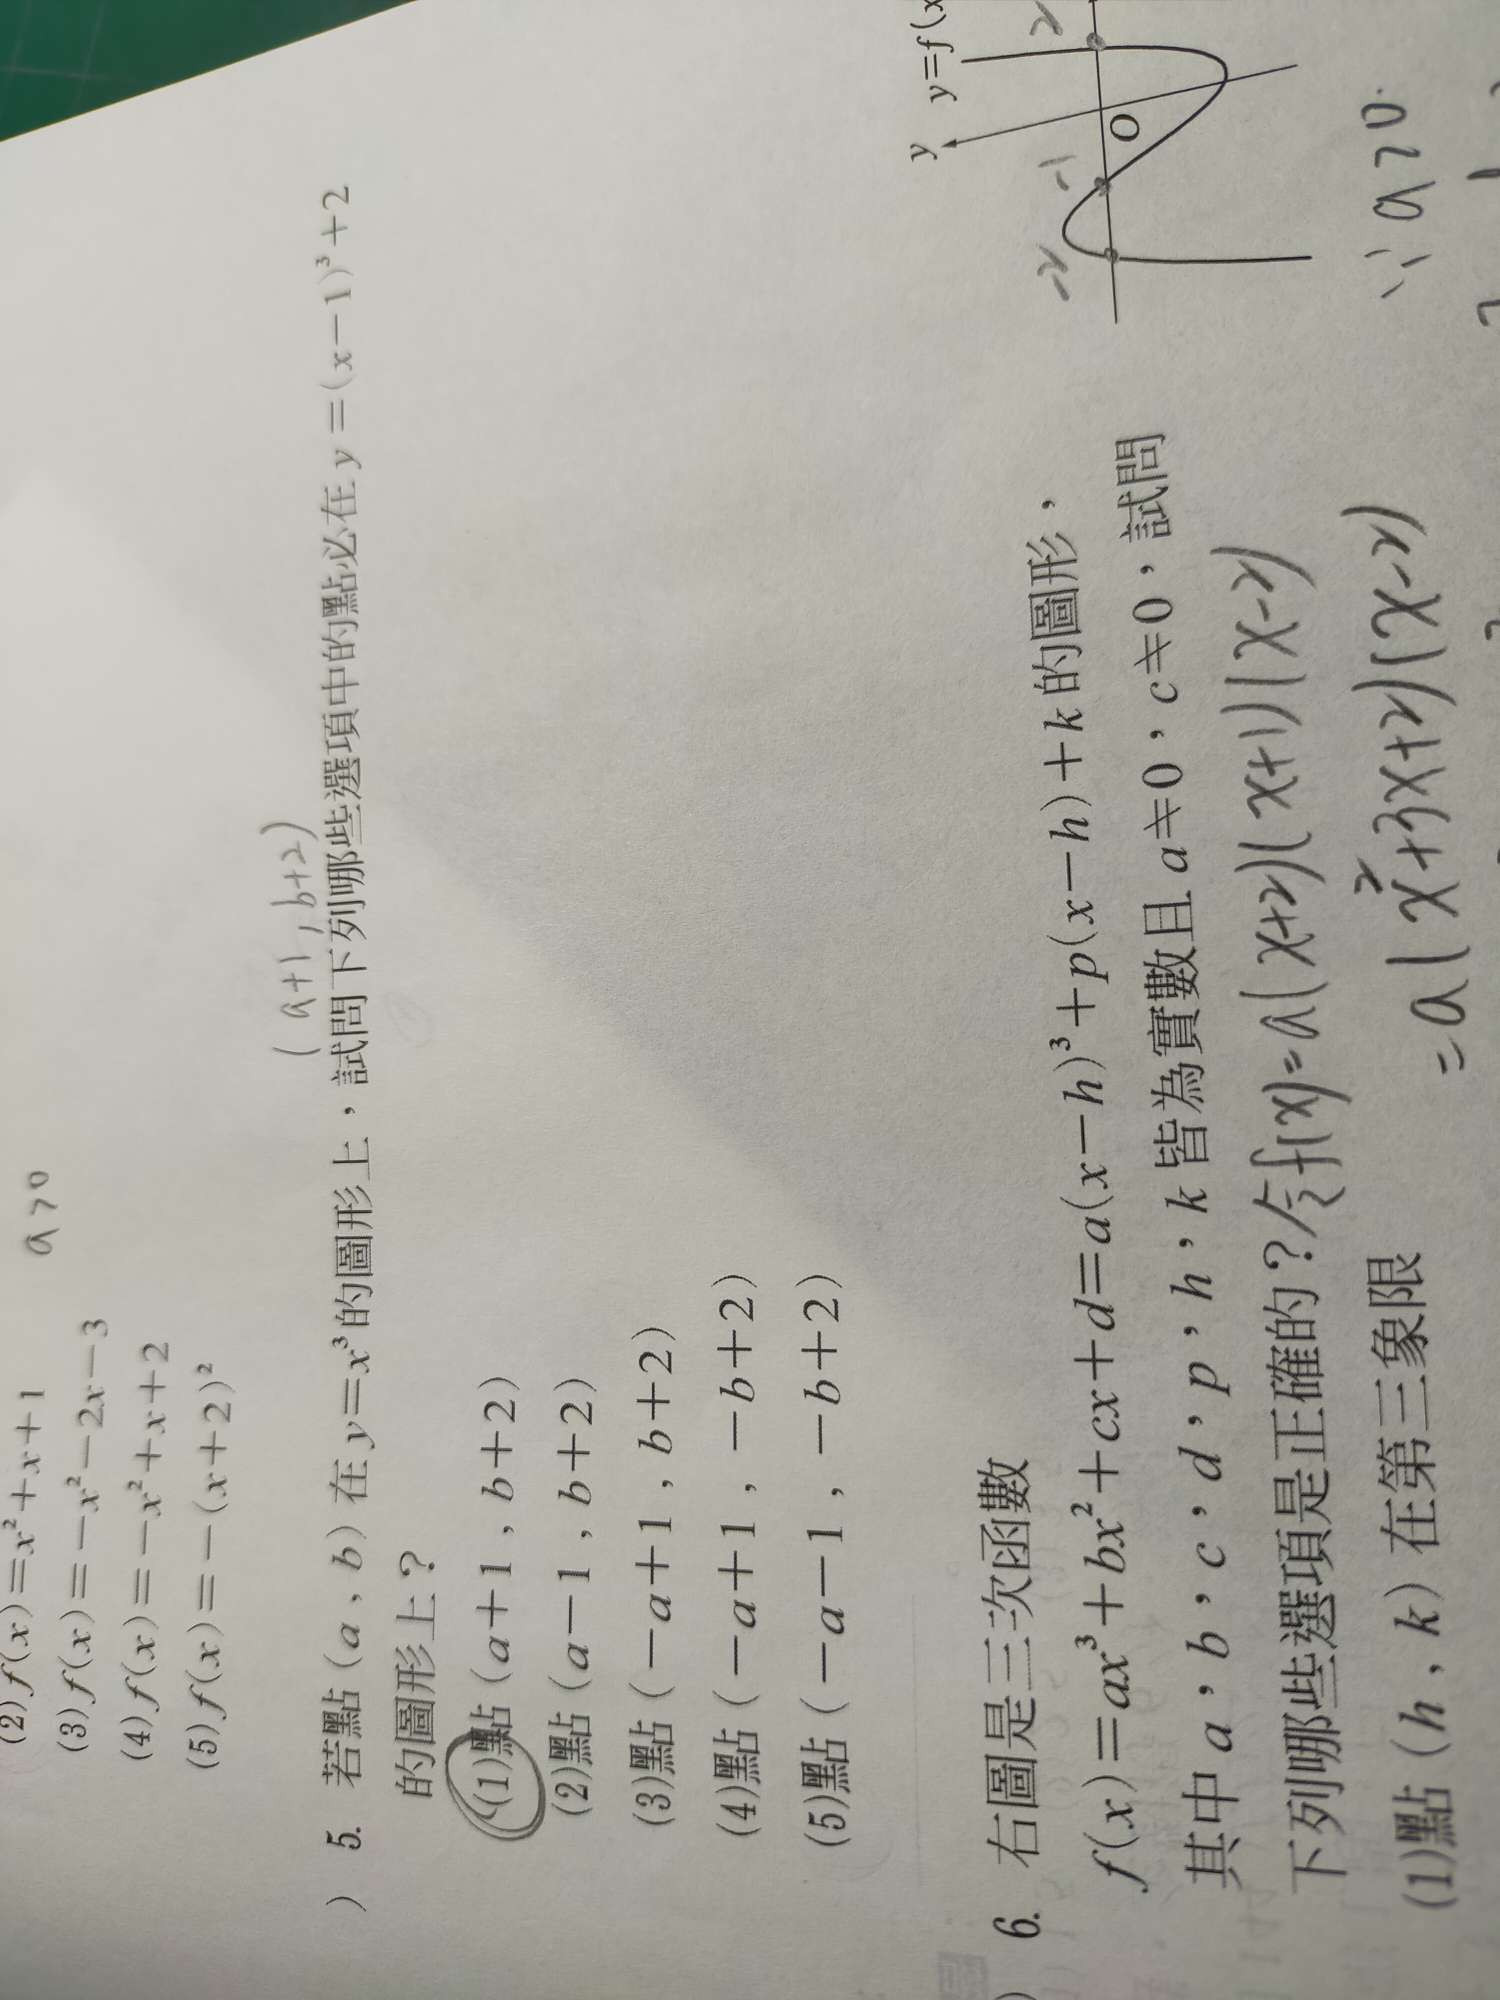 (2) f(x)=x²+x+1
a>0
(3) f(x)=-x²-2x-3
(4) f(x)=-x²+x+2
(5) f(x)=-(x+2)²
(a+1, b+2)
) 5. 若點(a, b)在y=x³的圖形上，試問下列哪些選項中的點必在y=(x-1)³+2
的圖形上？
(1)點(a+1, b+2)
(2)點(a-1, b+2)
(3)點(-a+1, b+2)
(4)點(-a+1, -b+2)
(5)點(-a-1, -b+2)
) 6. 右圖是三次函數
f(x)=ax³+bx²+cx+d=a(x-h)³+p(x-h)+k的圖形，
其中a，b，c，d，p，h，k皆為實數且a≠0，c≠0，試問
下列哪些選項是正確的？令f(x)=a(x+2)(x+1)(x-2)
=a(x²+3x+2)(x-2)
(1)點(h, k)在第三象限
y
y=f(x
-2
-1
O
2
∵a>0